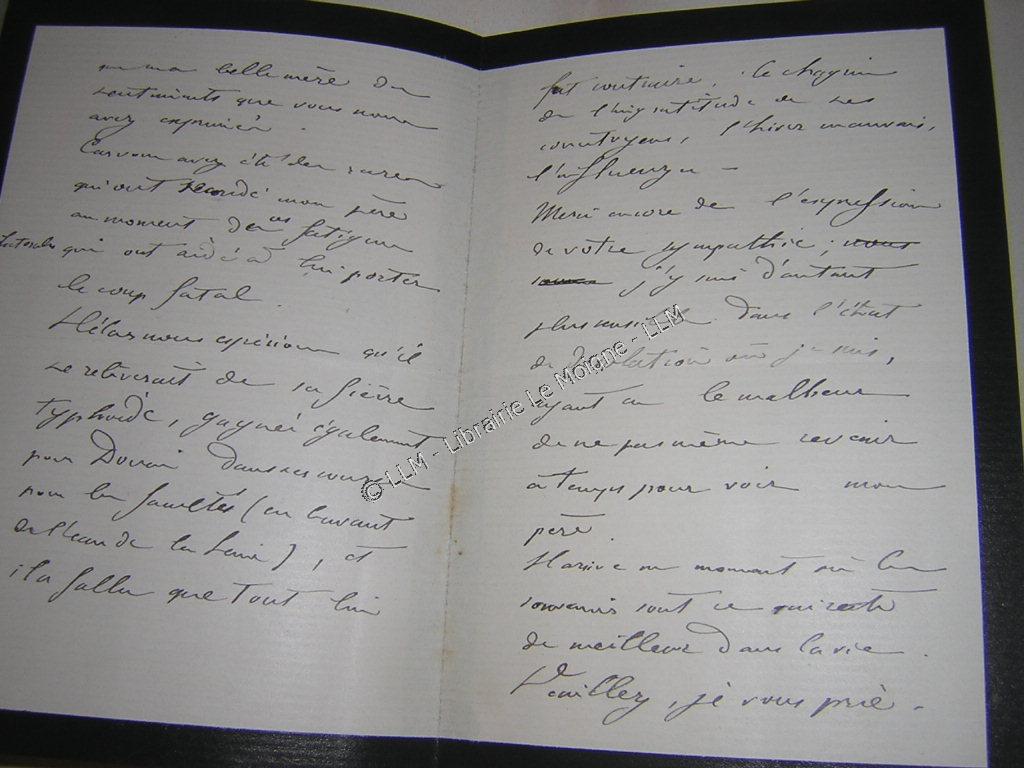 ma belle mère des
sentiments que vous nous
avez exprimés.
Car vous avez été des rares
qui ont secondé mon père
au moment de ces fatigues
électorales qui ont aidé à lui porter
le coup fatal.
Hélas nous espérions qu'il
se relèverait de sa fièvre
typhoïde, gagnée également
pour Douai dans ses courses
pour les facultés (en buvant
de l'eau de la Seine), et
il a fallu que tout lui
fut contraire, le chagrin
de l'ingratitude de ses
concitoyens, l'hiver mauvais,
l'influenza –
Merci encore de l'expression
de votre sympathie ;
j'y suis d'autant
plus sensible dans l'état
de désolation où je suis,
ayant eu le malheur
de ne pas même revenir
à temps pour voir mon
père.
Il arrive un moment où les
souvenirs sont ce qui reste
de meilleur dans la vie.
Veuillez, je vous prie –
© LLM - Librairie Le Moigne - LLM